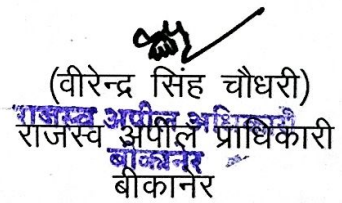 (वीरेन्द्र सिंह चौधरी)
राजस्व अपील अधिकारी
राजस्व अपील प्राधिकारी
बीकानेर
बीकानेर